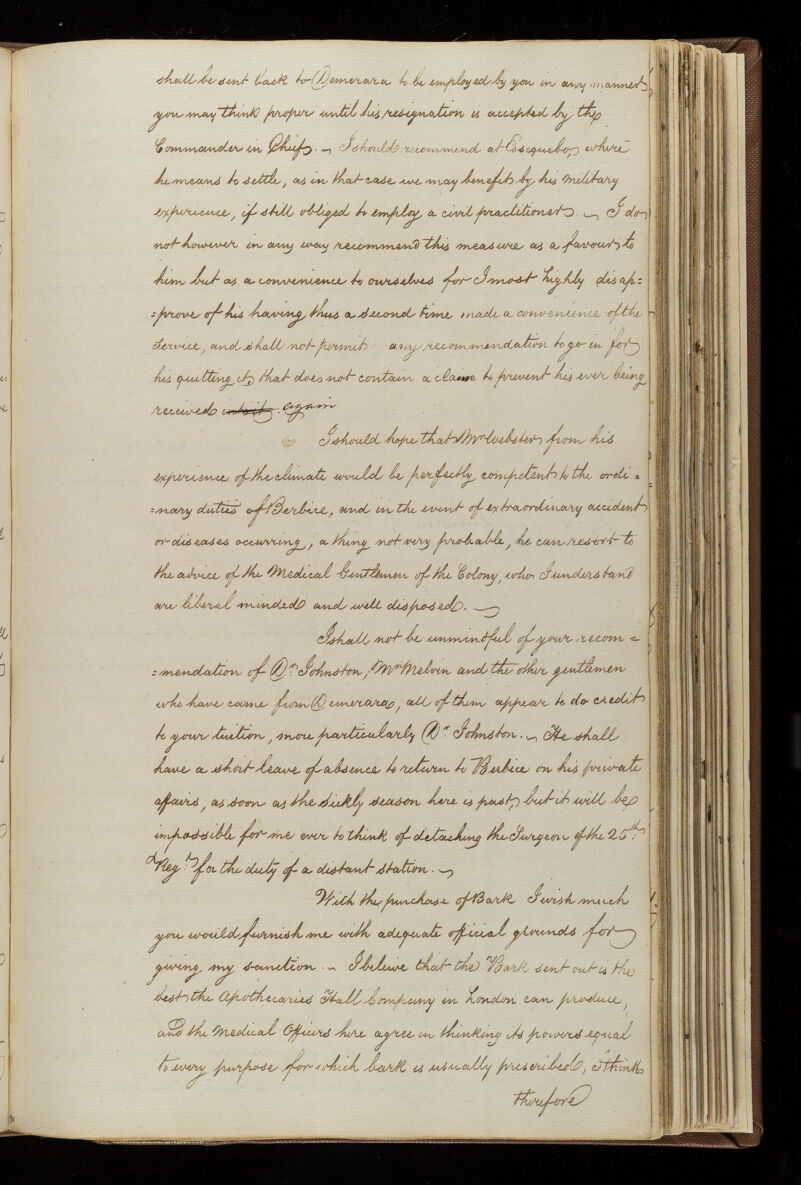 shall be sent back to Demerara to be employed by you in any manner
you may think proper until his resignation is accepted by the
Commander in Chief. ~ I should recommend at Essequebo, where
he means to settle, as in that case we may benefit by his military
experience, if still obliged to employ a civil practitioner. ~ I do
not however in any way recommend this measure as a favour to
him but as a convenience to ourselves for I most highly disap=
=prove of his having thus a second time made a convenience of the
Service, and shall not permit any recommendation to go in for
his quitting it, that does not contain a clause to prevent his ever being
received again
I should hope that Mr Webster from his
experience of the climate would be perfectly competent to the ordi=
=nary duties of Berbice, and in the event of extraordinary accident
or diseases occurring, a thing not very probable, he can resort to
the advice of the Medical Gentlemen of the Colony, who I understand
are liberal minded and well disposed. ~
I shall not be unmindful of your recom=
=mendation of Dr Johnston, Mr Melvin and the other gentlemen
who have came from Demerara, all of them appear to do credit
to your tuition, more particularly Dr Johnston. ~ He shall
have a short leave of absence to return to Berbice on his private
affairs, as soon as the sickly season here is past, but it will be
impossible for me ever to think of detaching the Surgeon of the 25th
Regt for the duty of a distant station. ~
With the purchase of Bark I wish much
you would furnish me with adequate official grounds for
giving my sanction. ~ I beleive that the Bark sent out is the
best the Apothecaries Hall Company in London can produce,
and the Medical Officers here agree in thinking its powers equal
to every purpose for which bark is usually prescribed, I think
therefore